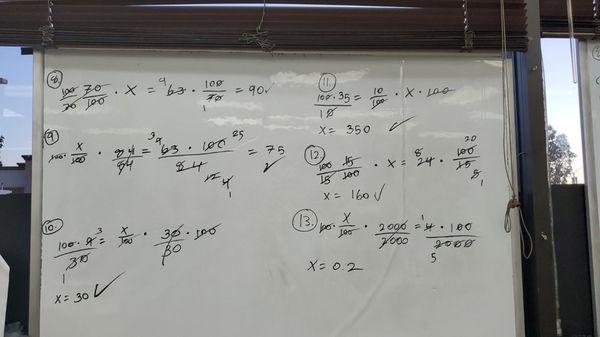 8. 100/70 70/100 · X = 9 63 · 100/70 1 = 90 ✓
9. 100 · X/100 · 84/84 = 3 9 63 · 100 25/84 12 4 1 = 75 ✓
10. 100 · 9 3/30 1 = X/100 · 30/30 · 100
X = 30 ✓
11. 100 · 35/10 = 10/100 · X · 100
X = 350 ✓
12. 100/15 15/100 · X = 8 24 · 100 20/15 5 1
X = 160 ✓
13. 100 · X/100 · 2000/2000 = 1 4 · 100/2000 5
X = 0.2